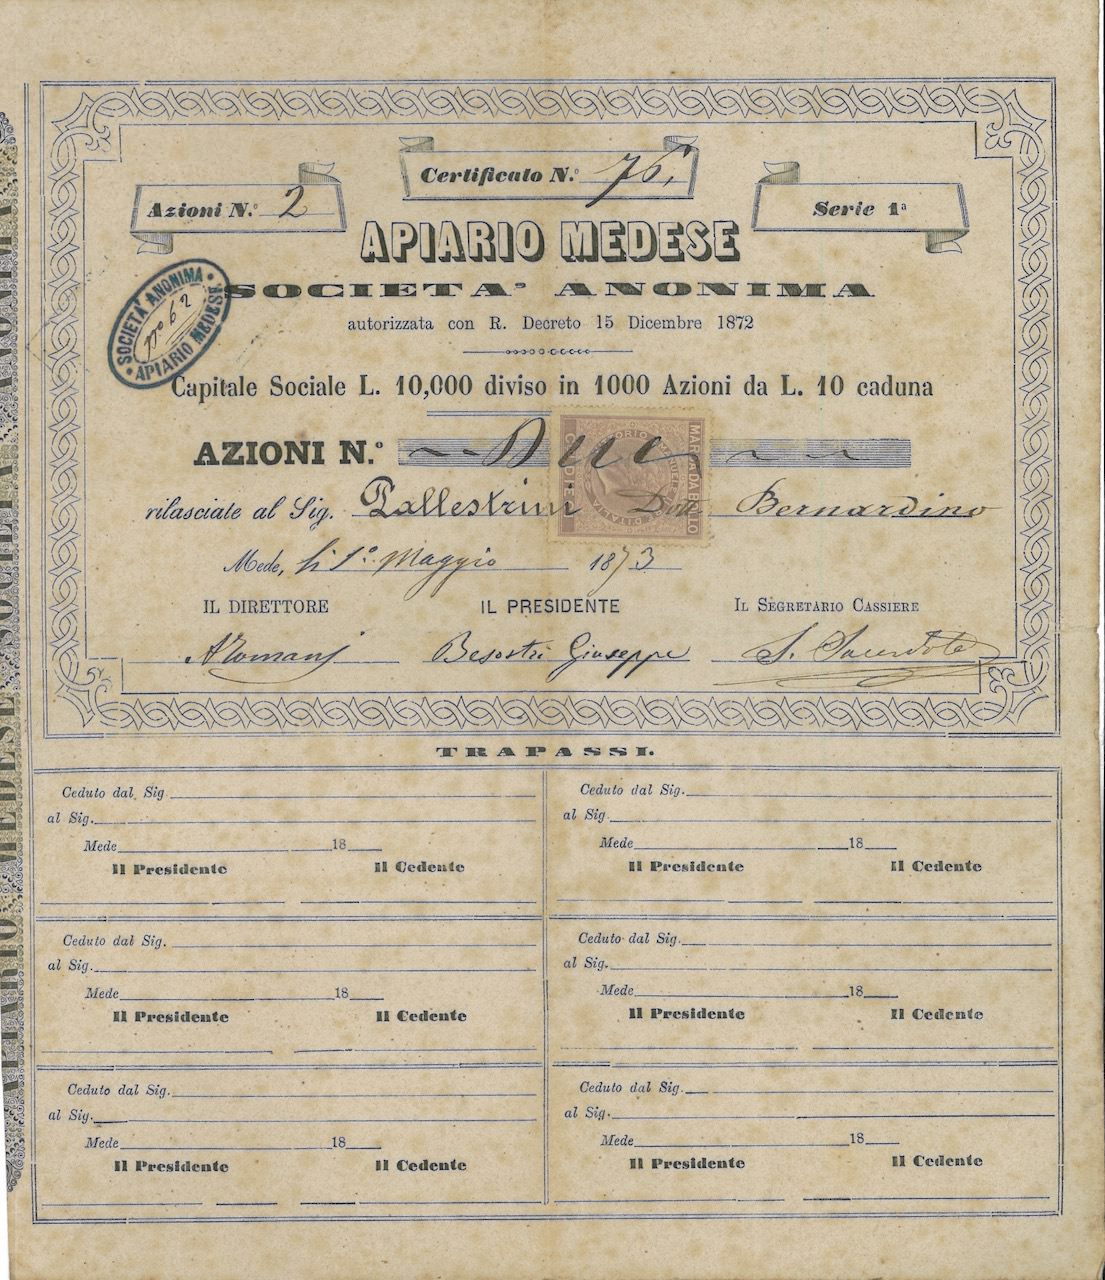 Certificato N.º 76,
Azioni N.º 2
Serie 1ª
APIARIO MEDESE
SOCIETA' ANONIMA
autorizzata con R. Decreto 15 Dicembre 1872
SOCIETA' ANONIMA
APIARIO MEDESE
Capitale Sociale L. 10,000 diviso in 1000 Azioni da L. 10 caduna
AZIONI N.º Due
MARCA DA BOLLO
rilasciate al Sig. Pallestrini Dott Bernardino
Mede, li 1º Maggio 1873
IL DIRETTORE IL PRESIDENTE IL SEGRETARIO CASSIERE
Besostri Giuseppe S. Sacerdote
TRAPASSI.
Ceduto dal Sig.
al Sig.
Mede 18
Il Presidente Il Cedente
Ceduto dal Sig.
al Sig.
Mede 18
Il Presidente Il Cedente
Ceduto dal Sig.
al Sig.
Mede 18
Il Presidente Il Cedente
Ceduto dal Sig.
al Sig.
Mede 18
Il Presidente Il Cedente
Ceduto dal Sig.
al Sig.
Mede 18
Il Presidente Il Cedente
Ceduto dal Sig.
al Sig.
Mede 18
Il Presidente Il Cedente
APIARIO MEDESE SOCIETÀ ANONIMA